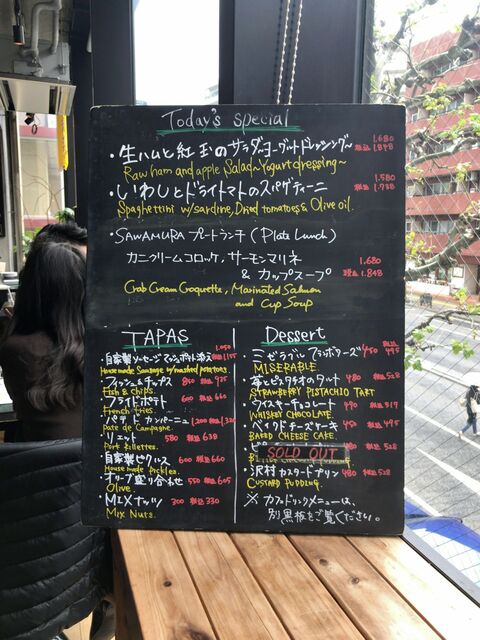 Today's special
・生ハムと紅玉のサラダ〜ヨーグルトドレッシング〜 1.680 税込 1.848
Raw ham and apple Salad〜Yogurt dressing〜
・いわしとドライトマトのスパゲティーニ 1.580 税込 1.738
Spaghettini w/sardine, Dried tomatoes & Olive oil.
・SAWAMURA プレートランチ (Plate Lunch)
カニクリームコロッケ、サーモンマリネ
& カップスープ 1.680 税込 1.848
Crab Cream Croquette, Marinated Salmon
and Cup Soup
TAPAS
・自家製ソーセージマッシュポテト添え 1.050 税込 1155
House made Sausage w/mashed potatoes.
・フィッシュ&チップス 850 税込 935
Fish & chips.
・フライドポテト 600 税込 660
French fries.
・パテ ド カンパーニュ 1.200 税込 1.320
Pate de Campagne.
・リエット 580 638
Pork Rillettes.
・自家製ピクルス 600 税込 660
House made Pickles.
・オリーブ盛り合わせ 550 税込 605
Olive.
・MIXナッツ 300 税込 330
Mix Nuts.
Dessert
・ミゼラブル 450 税込 495
MISERABLE.
・苺とピスタチオのタルト 480 税込 528
STRAWBERRY PISTACHIO TART
・ウイスキーチョコレート 490 税込 539
WHISKEY CHOCOLATE.
・ベイクドチーズケーキ 450 税込 495
BAKED CHEESE CAKE.
SOLD OUT 528
・沢村カスタードプリン 480 税込 528
CUSTARD PUDDING.
※ カフェドリンクメニューは、
別黒板をご覧ください。